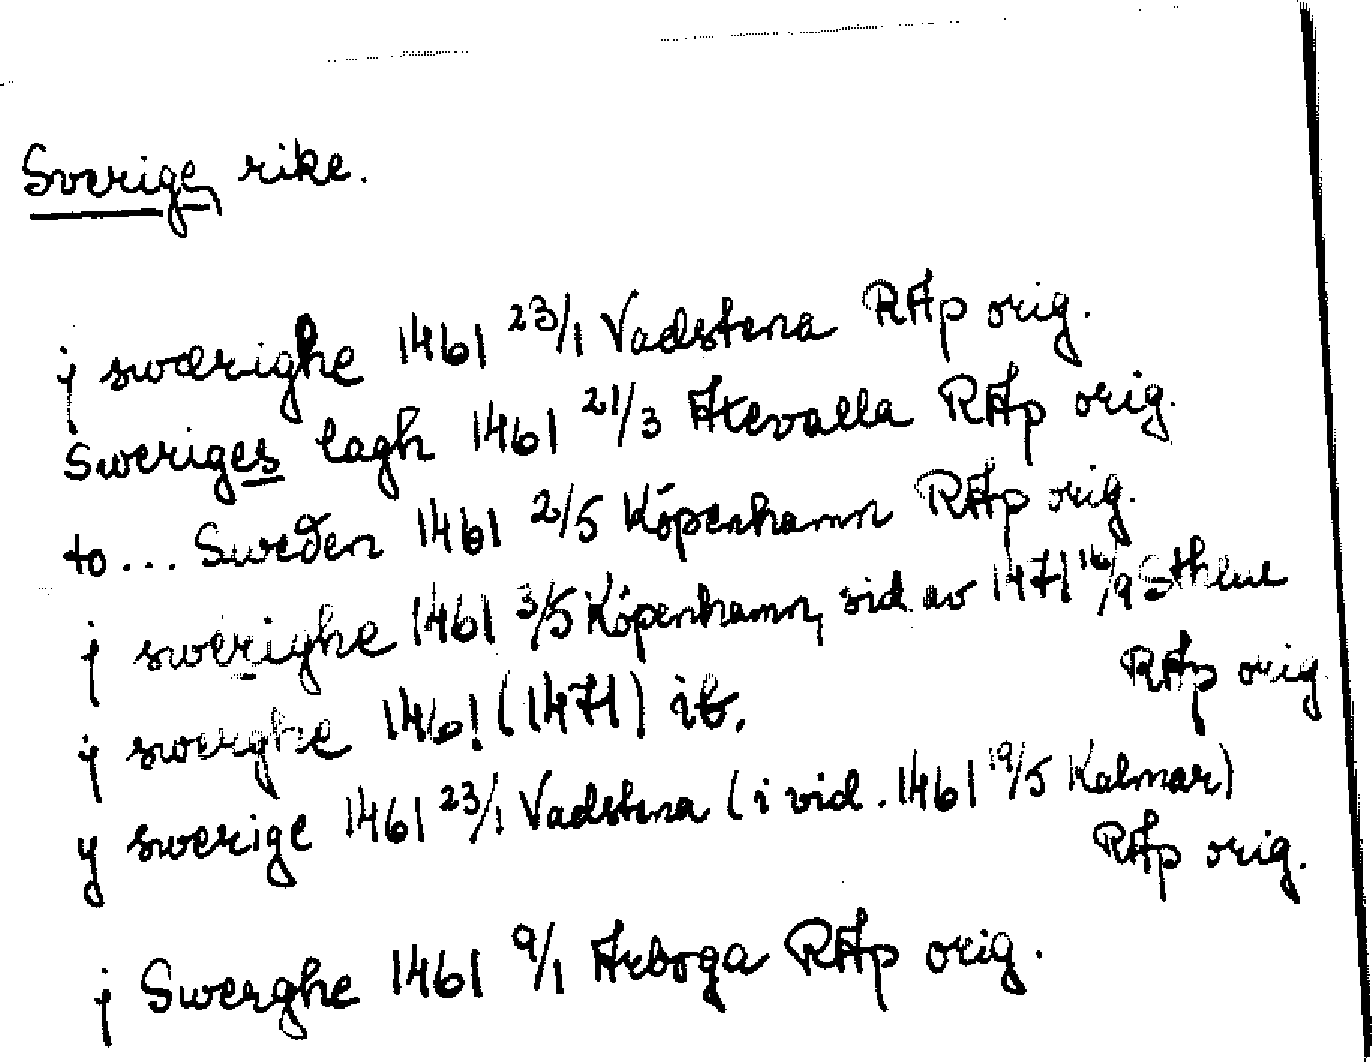 Sverige, rike.
j swærighe 1461 23/1 Vadstena RAp orig.
Sweriges lagh 1461 21/3 Atevalla RAp orig.
to... Sweden 1461 2/5 Köpenhamn RAp orig.
j swerighe 1461 3/5 Köpenhamn, vid. av 1471 16/9 Sthlm
RAp orig.
j swerghe 1461 (1471) ib.
y swerige 1461 23/1 Vadstena (i vid. 1461 19/5 Kalmar)
RAp orig.
j Swerghe 1461 9/1 Arboga RAp orig.